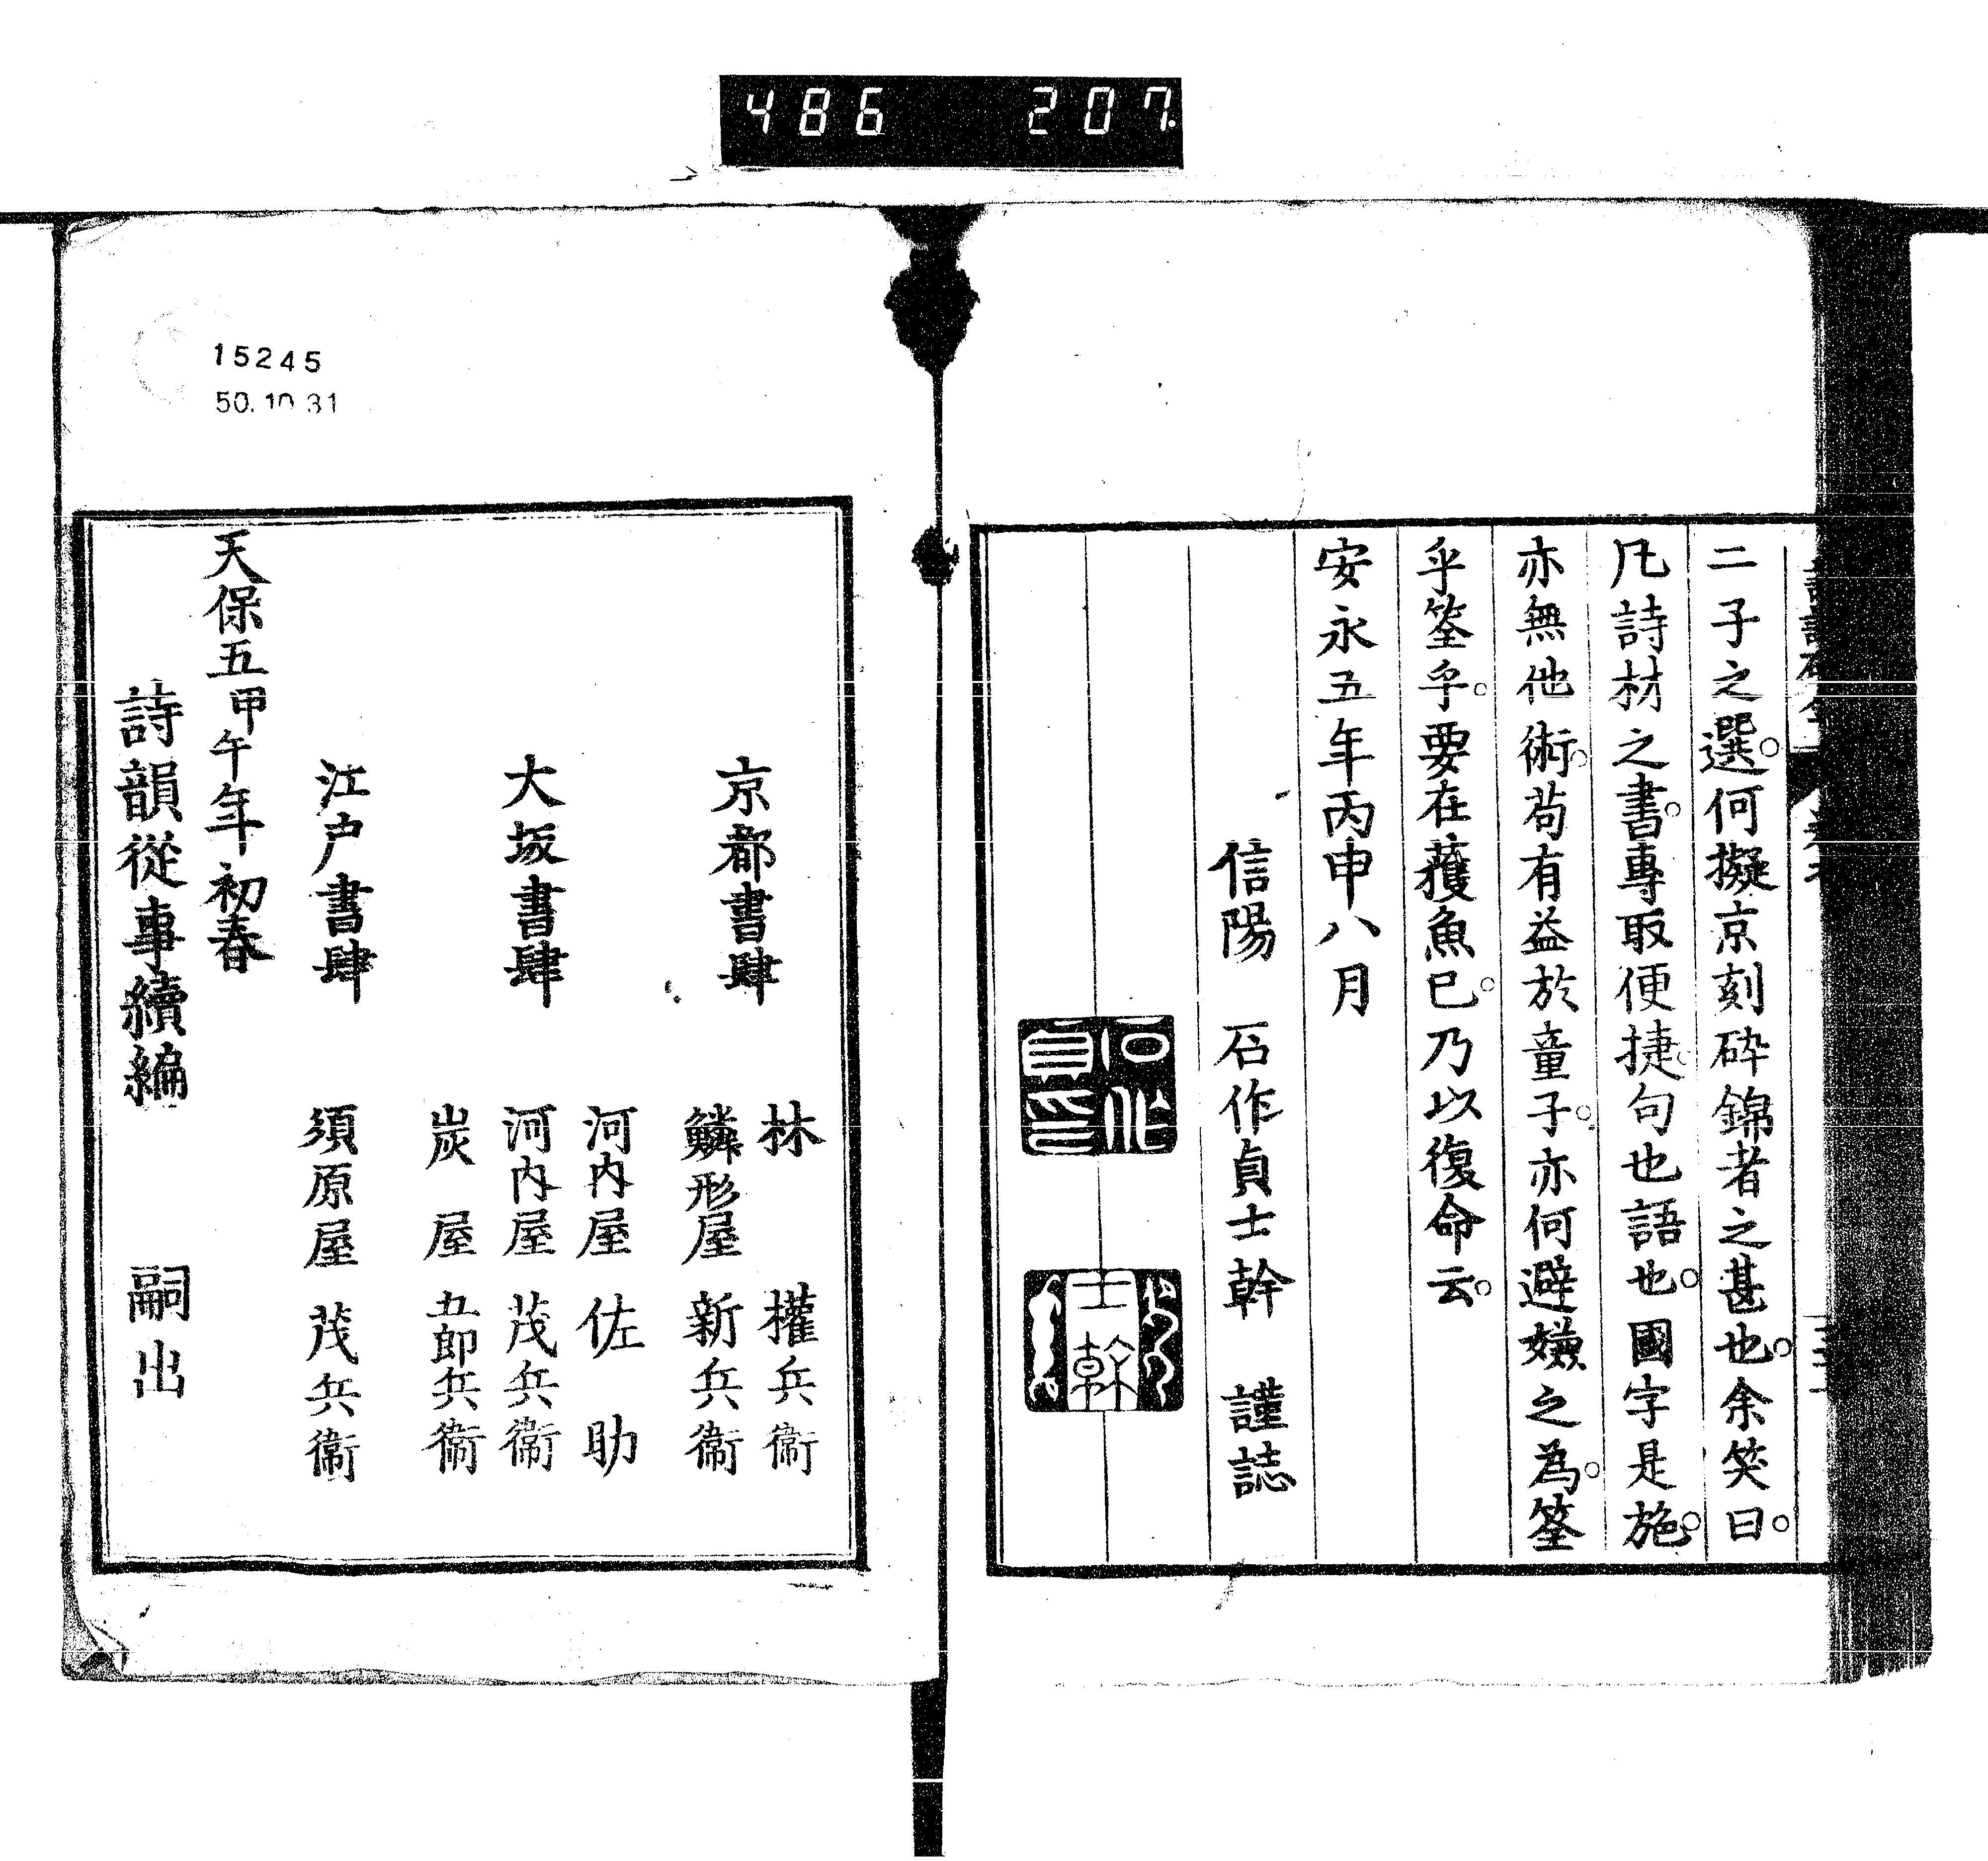 486 207.
二子之選。何擬京刻砕錦者之甚也。余笑曰。
凡詩材之書。專取便捷。句也語也。國字是施。
亦無他術。苟有益於童子。亦何避嫌之為。筌
乎筌乎。要在獲魚已。乃以復命云。
安永五年丙申八月
信陽 石作貞士幹 謹誌
士幹
15245
50.10 31
京都書肆 林 權兵衞
鱗形屋 新兵衞
大坂書肆 河内屋 佐助
河内屋 茂兵衞
炭屋 五郎兵衞
江戸書肆 須原屋 茂兵衞
天保五甲午年初春
詩韻從事續編 嗣出